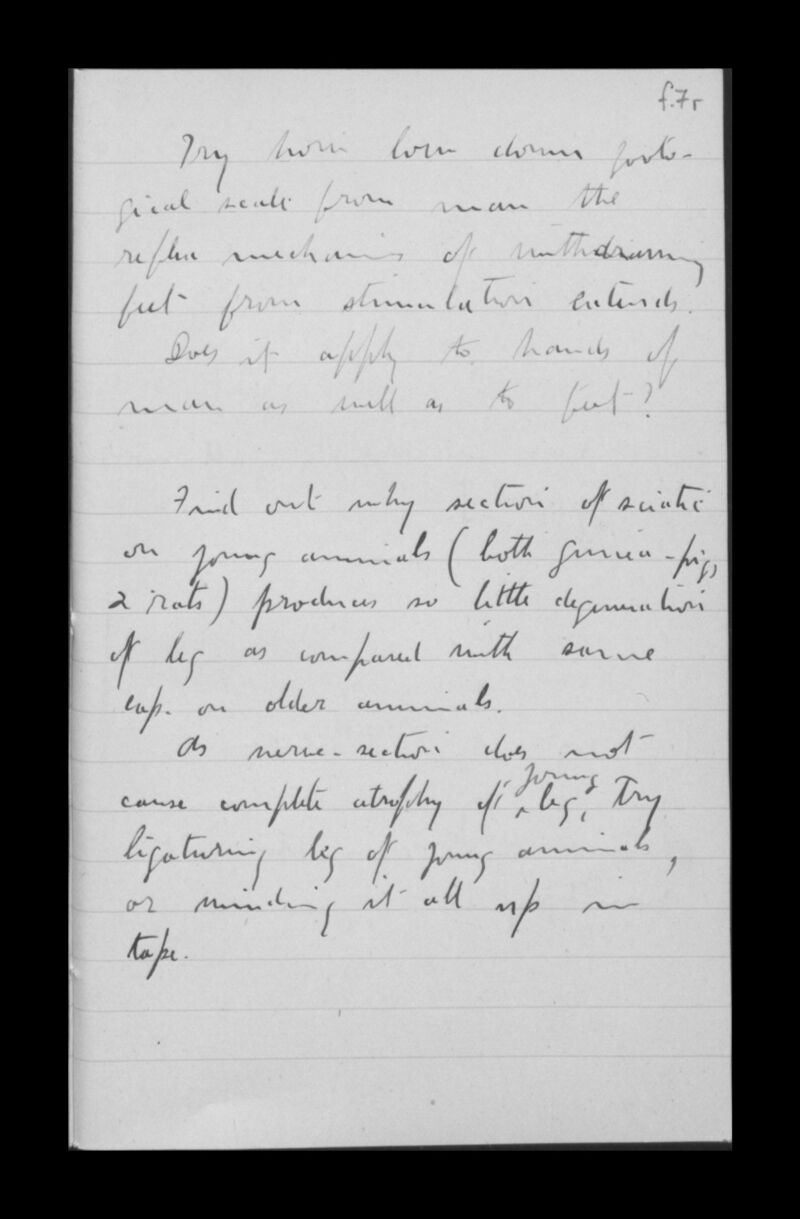 f.7r
Try how low down zoolo-
gical scale from man the
reflex mechanis of withdrawing
feet from stimulation extends.
Does it apply to hands of
man as well as to feet?
Find out why section of sciatic
on young animals (both guinea-pigs
& rats) produces so little degeneration
of leg as compared with same
exp. on older animals.
As nerve-section does not
young
cause complete atrophy of ‸ leg, try
ligaturing leg of young animals,
or winding it all up in
tape.